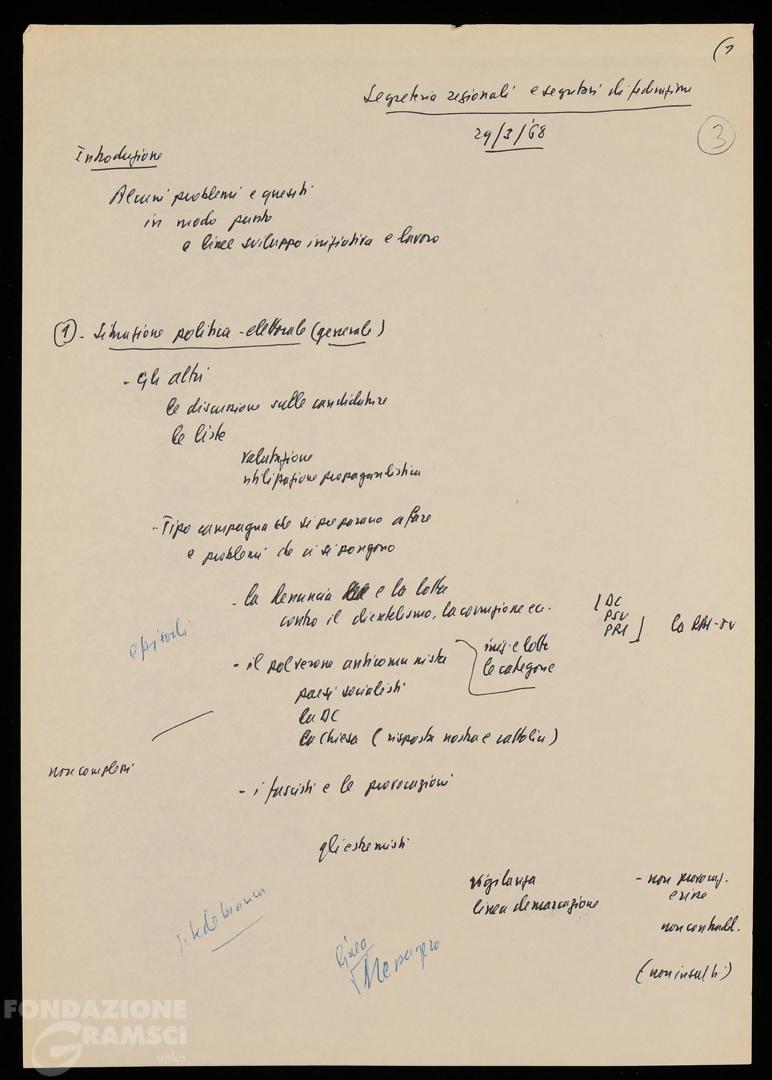 (1
Segreteria regionali e segretari di federazione
29/3/'68
3
Introduzione
Alcuni problemi e quesiti
in modo
e linee sviluppo iniziativa e lavoro
(1) - Situazione politica-elettorale (generale)
- Gli altri
le discussione sulle candidature
le liste
valutazione
utilizzazione propagandistica
- Tipo campagna che si preparano a fare
e problemi che ci si pongono
- la denuncia e la lotta
contro il clientelismo, la corruzione ecc.
DC
PSU
PRI
la RAI-TV
episodi
- il polverone anticomunista
iniz. e lotte
le categorie
paesi socialisti
la DC
la Chiesa (risposta nostra e cattolici)
non complessi
- i fascisti e le provocazioni
gli estremisti
vigilanza
linea demarcazione
- non provocaz.
non contradd.
(non insulti)
scheda bianca
linea
Messaggero
FONDAZIONE
GRAMSCI
onlus